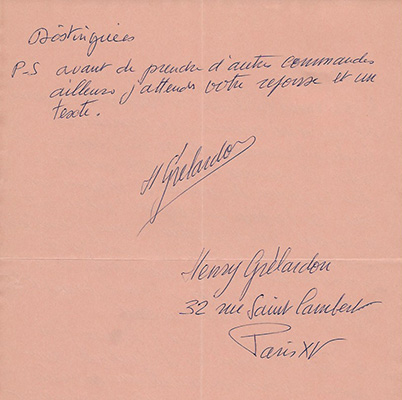 Distinguées
P-S avant de prendre d'autres commandes
ailleurs j'attends votre reponse et un
texte.
H Grélardon
Henry Grélardon
32 rue Saint Lambert
Paris XV